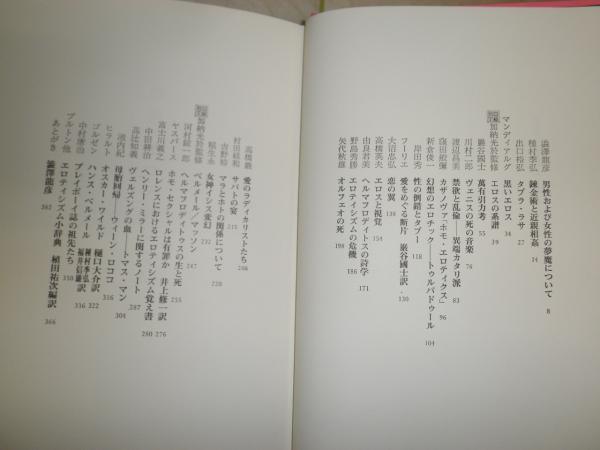 澁澤龍彦 男性および女性の夢魔について 8
種村季弘 錬金術と近親相姦 14
出口裕弘 タブラ・ラサ 27
マンディアルグ 黒いエロス 34
加納光於監修 エロスの系譜 39
巖谷國士 萬有引力考 55
川村二郎 ヴェニスの死の音楽 76
渡辺昌美 禁欲と乱倫——異端カタリ派 83
窪田般彌 カザノヴァ「ホモ・エロティクス」 96
新倉俊一 幻想のエロチック——トゥルバドゥール 104
岸田秀 性の倒錯とタブー 118
フーリエ 愛をめぐる断片 巖谷國士訳 130
大沼忠弘 恋の翼 138
高橋英夫 エロスと視覚 154
由良君美 ヘルマフロディトスの詩学 171
野島秀勝 エロティシズムの危機 186
矢代梓 オルフェオの死 198
高橋巖 愛のラディカリストたち 206
村田経和 サバトの宴 215
吉野裕 マラとホトの関係について 220
稲生永 女神イシス変幻 232
加納光於監修 ベルメール/マッソン 247
河村錠一郎 ヘルマフロディトゥスの生と死 255
ヤスパース ホモ・セクシャルは有罪か 井上修一訳 276
富士川義之 ロレンスにおけるエロティシズム覚え書 280
中田耕治 ヘンリー・ミラーに関するノート 287
高辻知義 ヴェルズングの血——トマス・マン 304
池内紀 母胎回帰——ウィーン・ロココ 316
ヒラルト オスカー・ワイルド 樋口大介訳 322
ゴルゼン ハンス・ベルメール 種村季弘 福井信雄訳 336
中村康治 プレイボーイ誌の祖先たち 350
ブルトン他 エロティシズム小辞典 植田祐次編訳 366
あとがき 澁澤龍彦 382